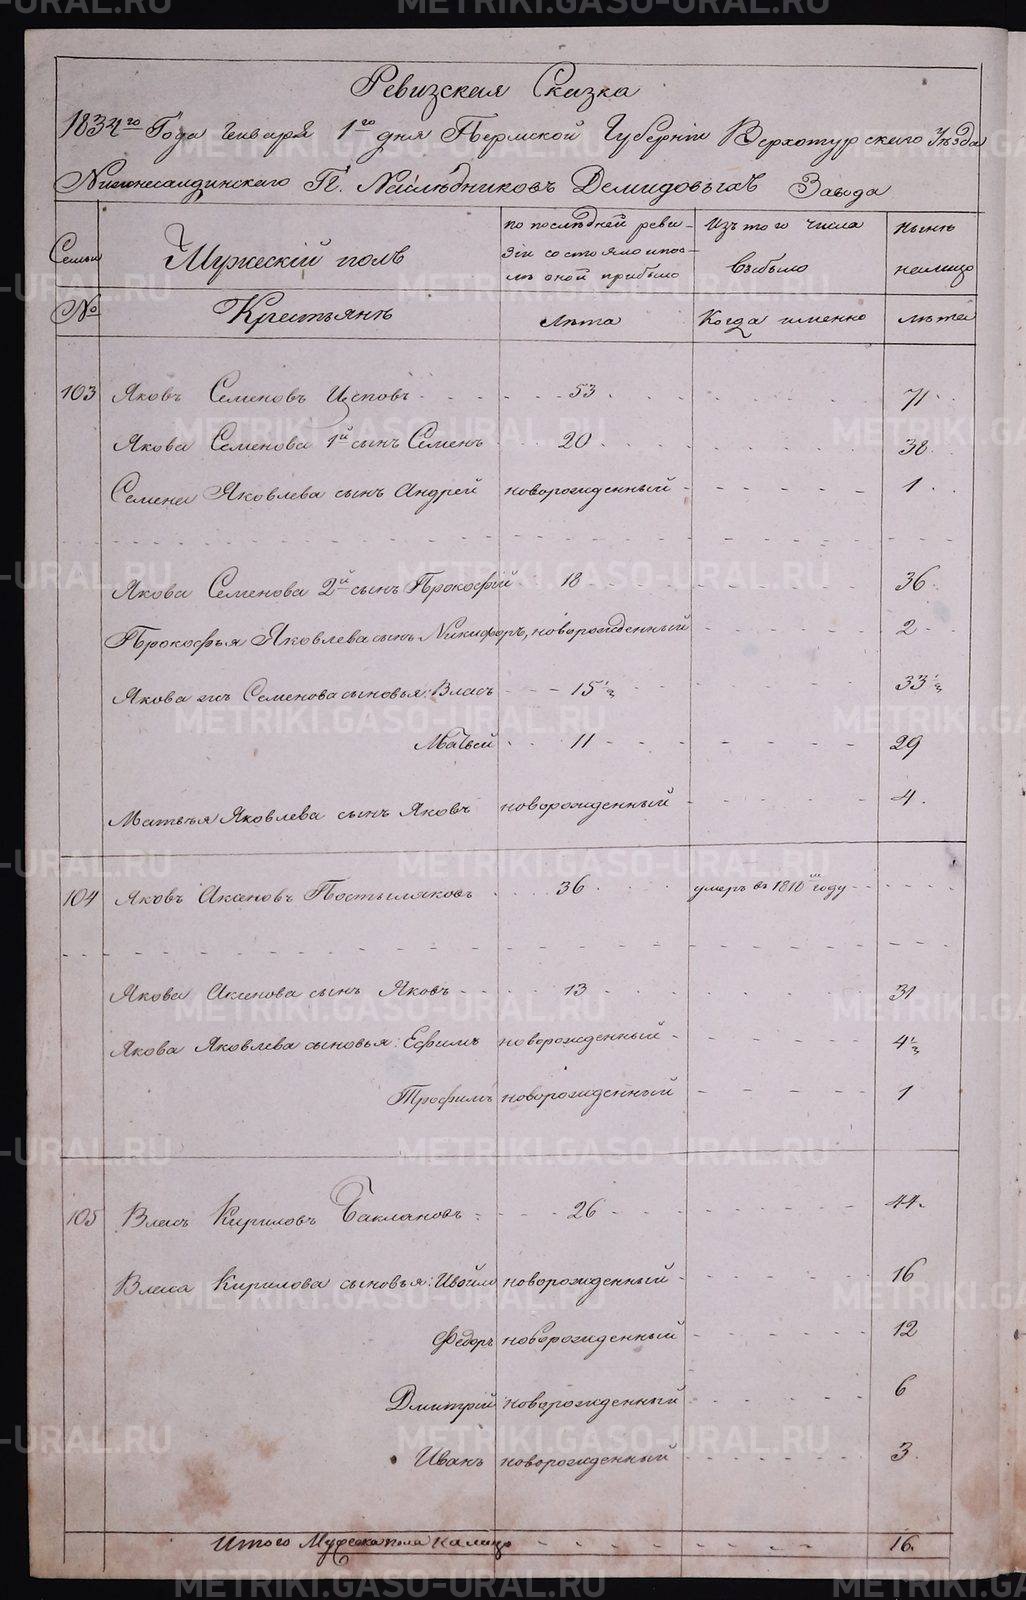 Ревизская Сказка
1834го Года Генваря 1го дня Пермской Губернiи Верхотурскаго Уѣзда
Нижнесалдинскаго Гг. Наслѣдниковъ Демидовыхъ Завода
Семьи Мужескiй полъ по послѣдней реви- Изъ того числа Нынѣ
зiи состояло и пос-
лѣ оной прибыло выбыло налицо
№ Крестьянъ Лѣта Когда именно лѣта
103 Яковъ Семеновъ Цеповъ 53 71
Якова Семенова 1й сынъ Семенъ 20 38
Семена Яковлева сынъ Андрей новорожденный 1
Якова Семенова 2й сынъ Прокофiй 18 36
Прокофья Яковлева сынъ Никифоръ, новорожденный 2
Якова жъ Семенова сыновья: Власъ 15½ 33½
Матвей 11 29
Матвѣя Яковлева сынъ Яковъ новорожденный 4
104 Яковъ Постыляковъ 36 умеръ въ 1816м году
Якова сынъ Яковъ 13 31
Якова Яковлева сыновья: Ефимъ новорожденный 4½
Трофимъ новорожденный 1
105 Власъ Кириловъ Баклановъ 26 44
Власа Кирилова сыновья: новорожденный 16
Федоръ новорожденный 12
Дмитрiй новорожденный 6
Иванъ новорожденный 3
Итого Мужеска пола налицо 16
METRIKI.GASO-URAL.RU